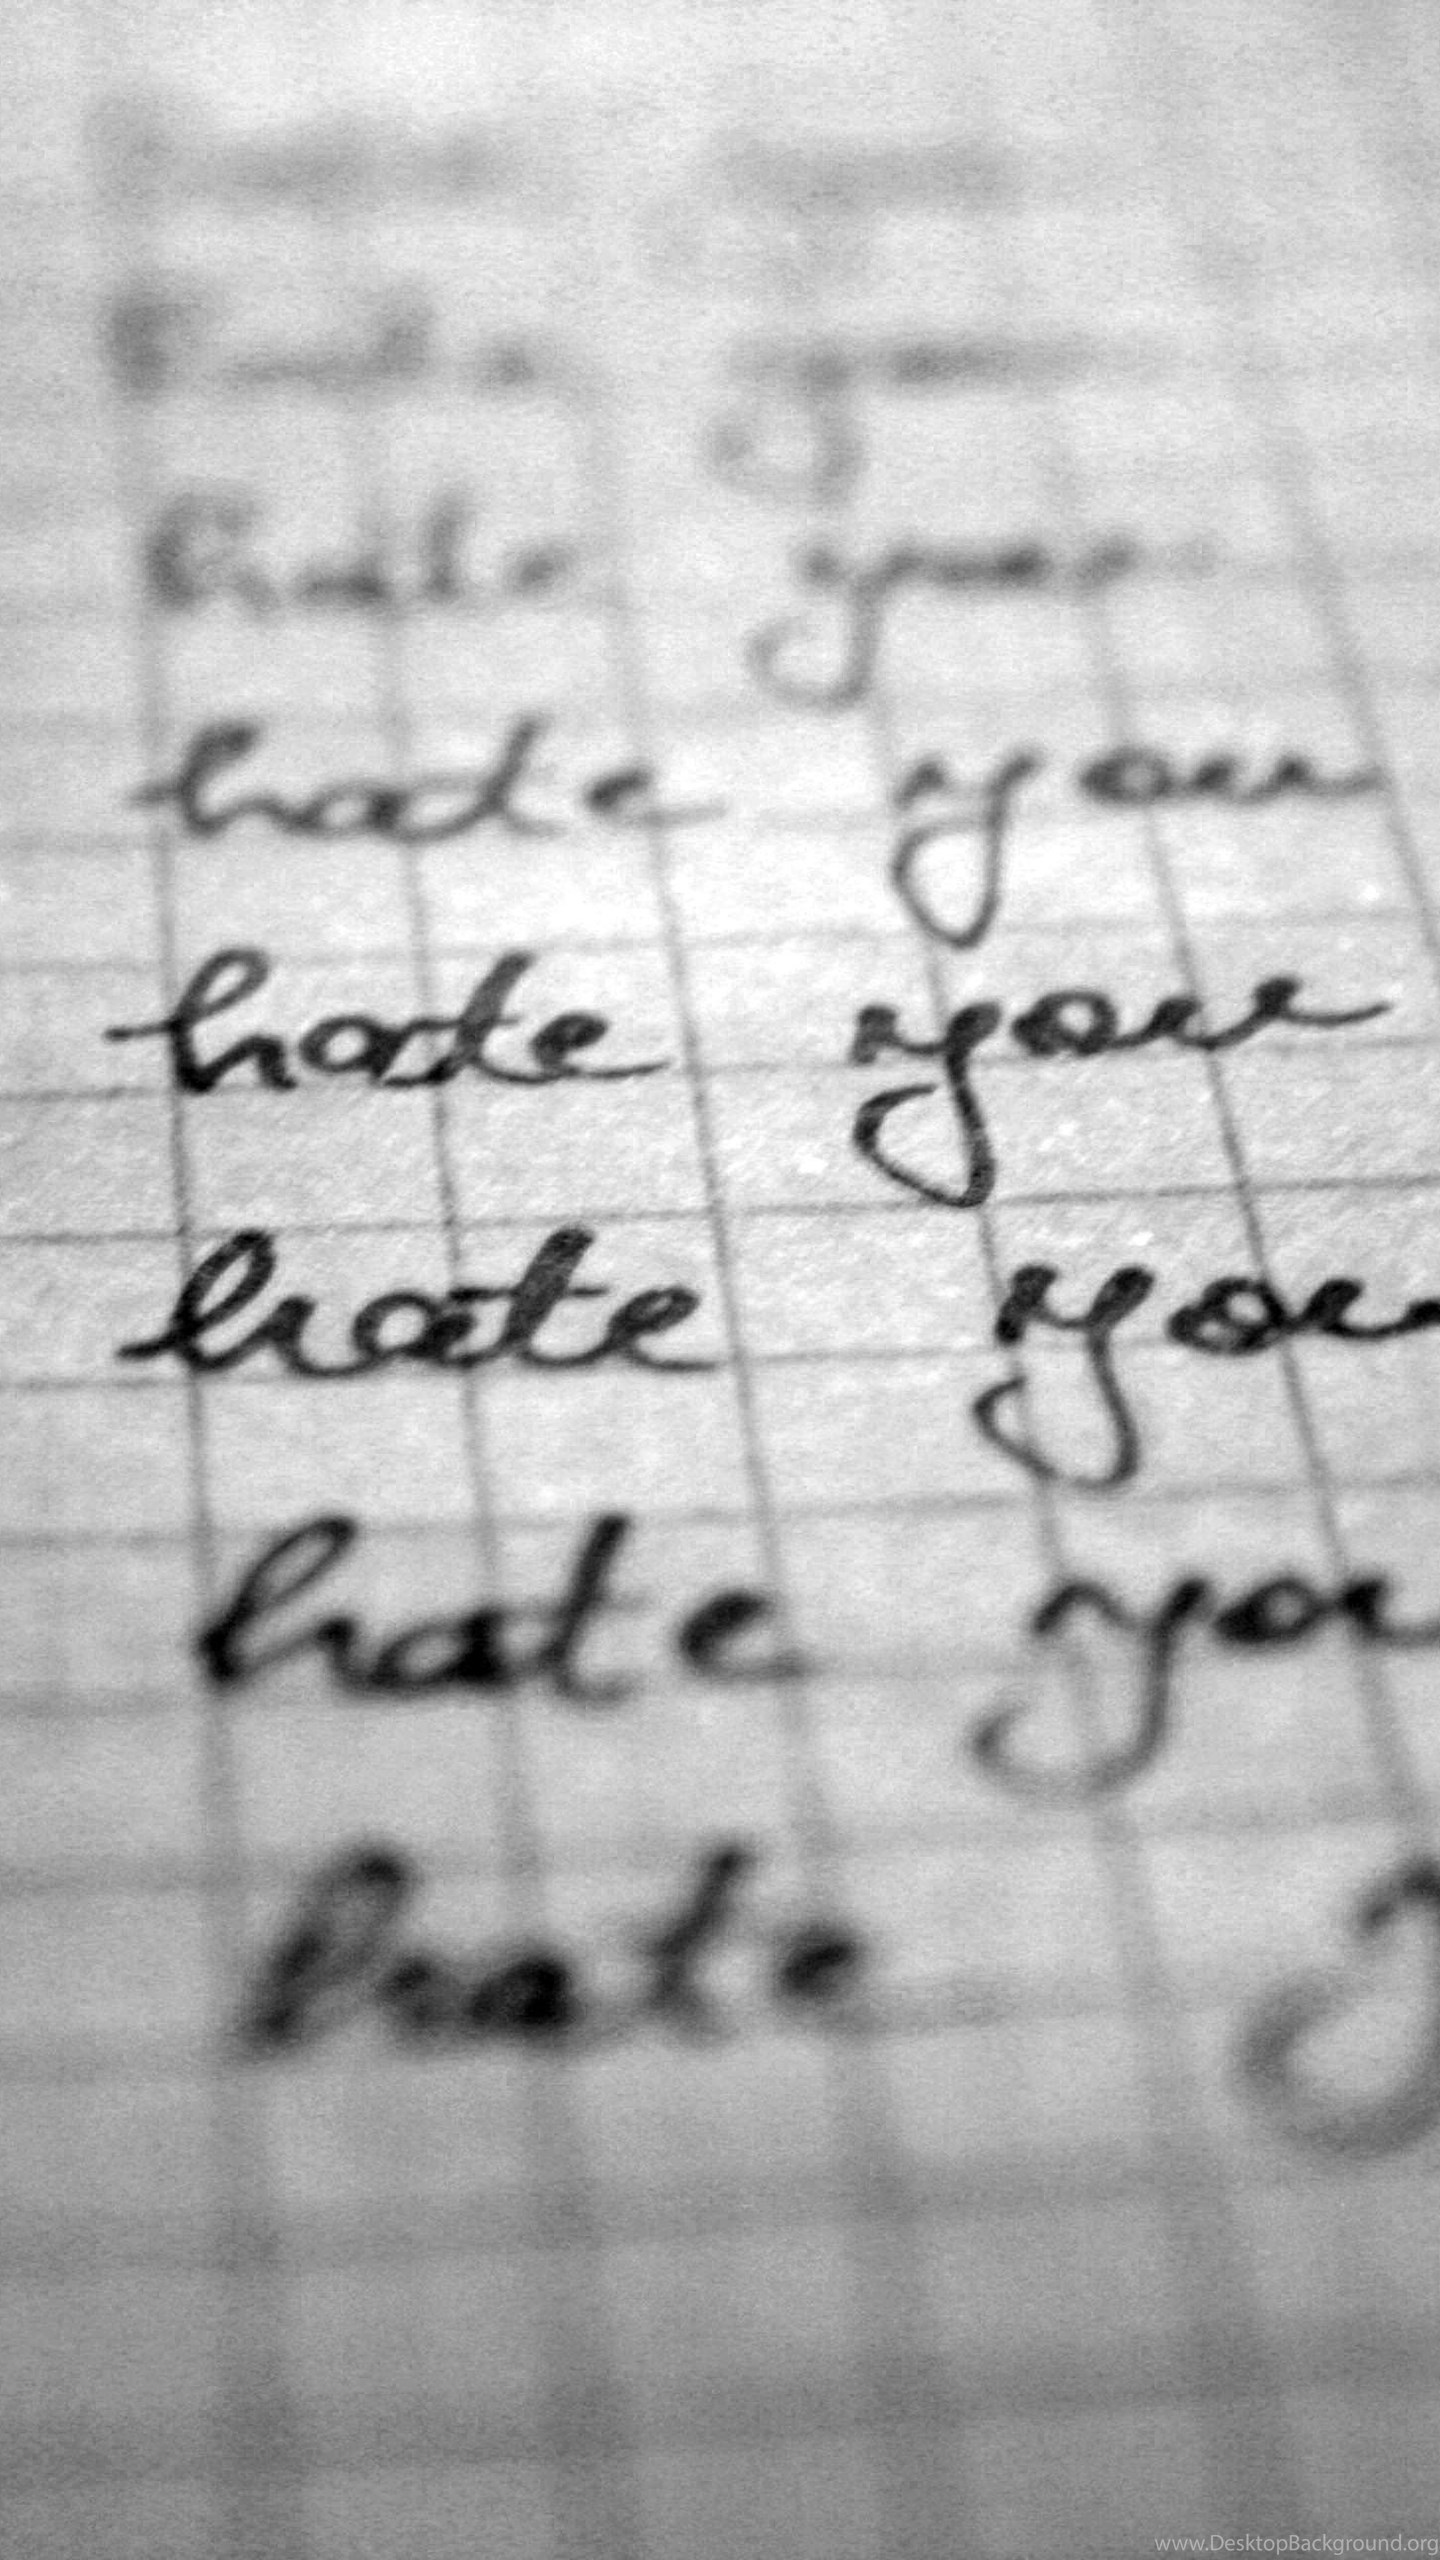 hate you
hate you
hate you
hate you
hate you
hate you
hate
www.DesktopBackground.org